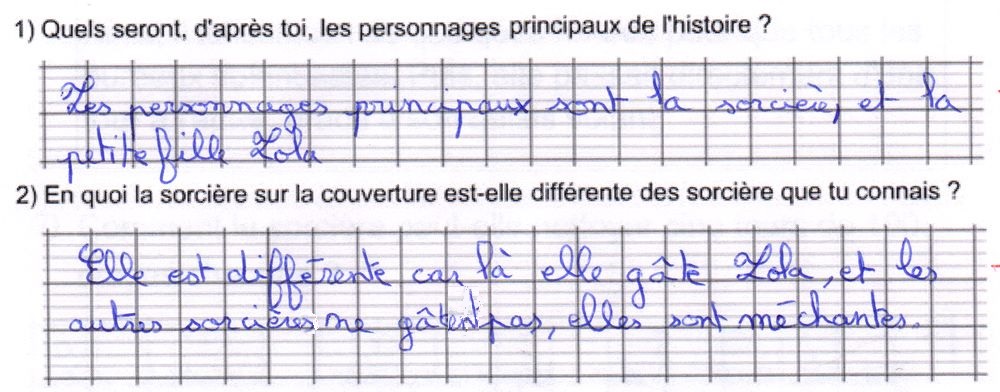 1) Quels seront, d'après toi, les personnages principaux de l'histoire ?
Les personnages principaux sont la sorcière, et la
petite fille Lola
2) En quoi la sorcière sur la couverture est-elle différente des sorcière que tu connais ?
Elle est différente car là elle gâte Lola, et les
autres sorcières ne gâtent pas, elles sont méchantes.